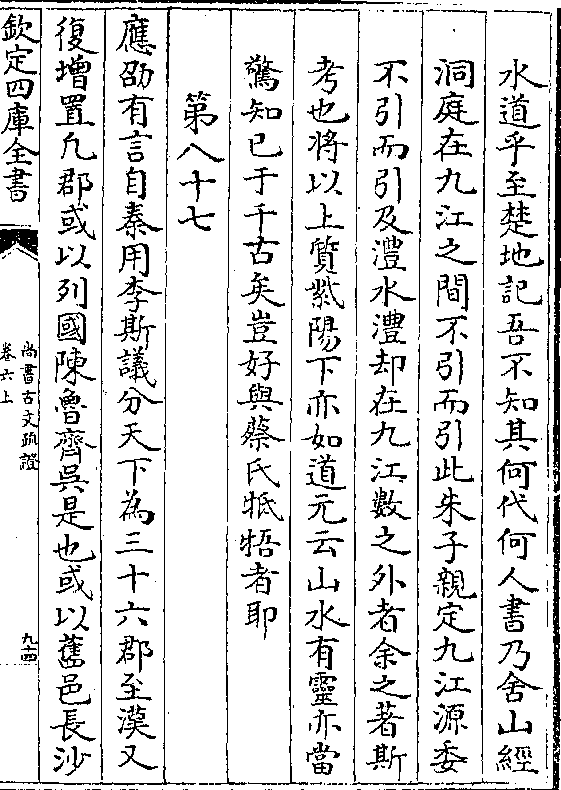 水道乎至楚地記吾不知其何代何人書乃舍山經
洞庭在九江之間不引而引此朱子親定九江源委
不引而引及澧水澧却在九江數之外者余之著斯
考也將以上質紫陽下亦如道元云山水有靈亦當
驚知已于千古矣豈好與蔡氏牴牾者耶
第八十七
應劭有言自秦用李斯議分天下為三十六郡至漢又
復增置凡郡或以列國陳魯齊吳是也或以舊邑長沙
欽定四庫全書
尚書古文疏證
卷六上
九十四